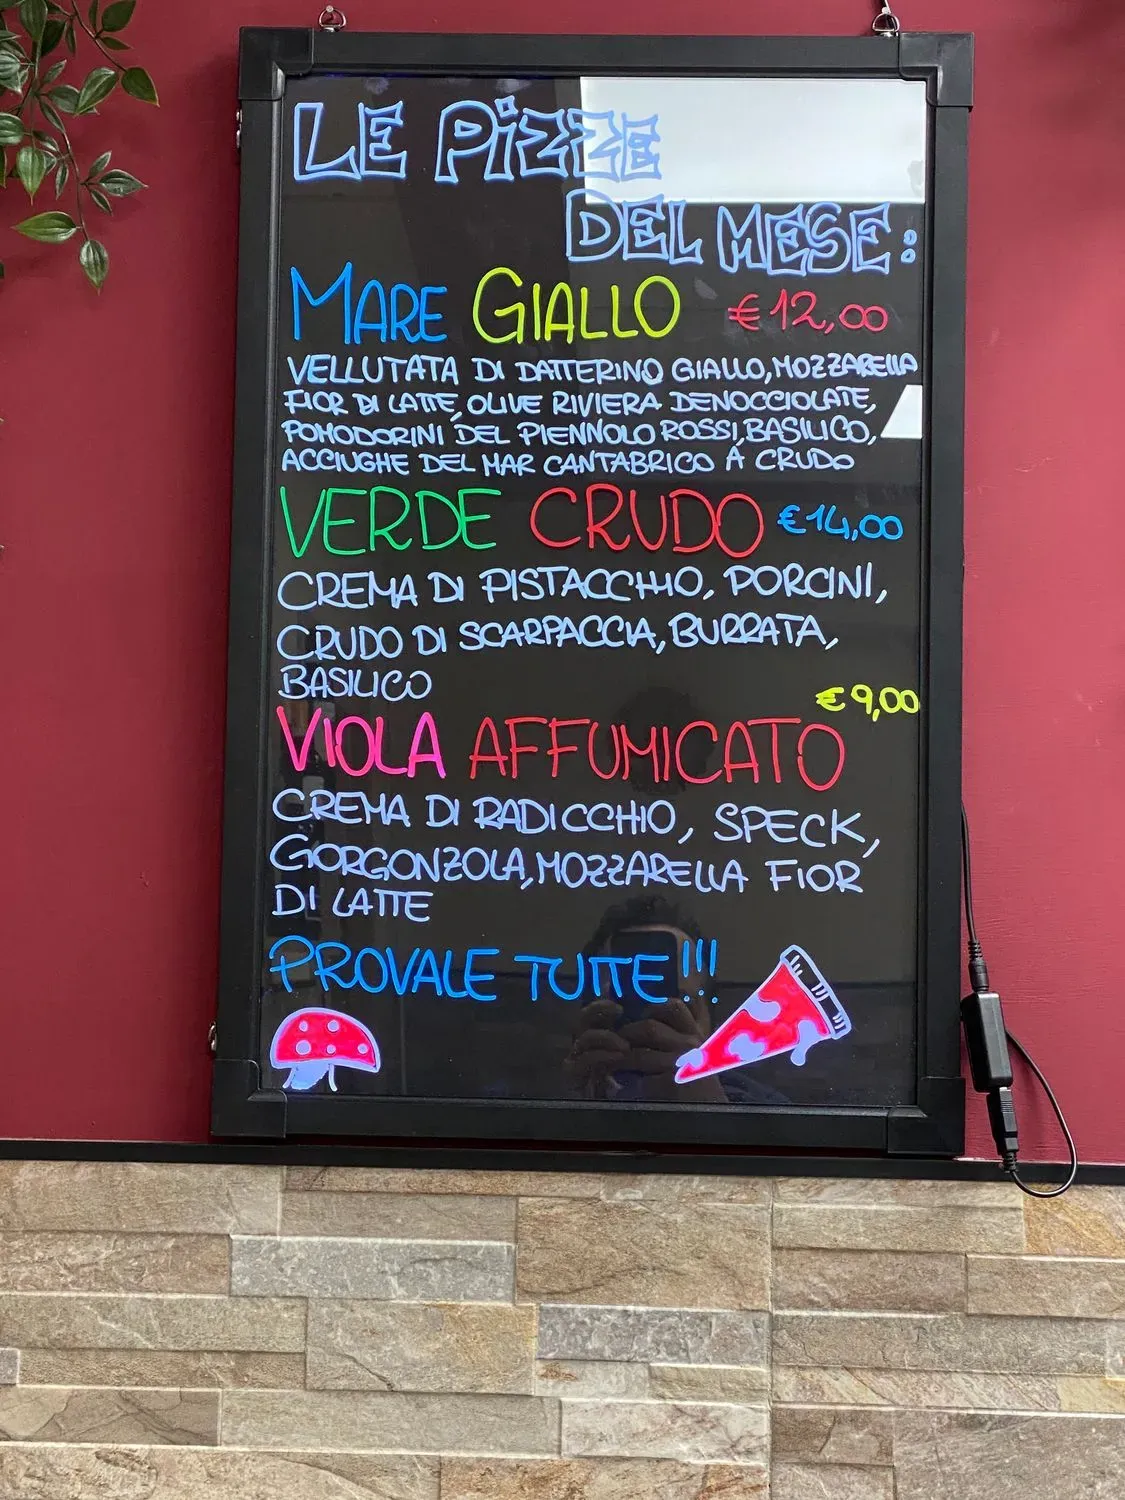 LE PIZZE
DEL MESE:
MARE GIALLO €12,00
VELLUTATA DI DATTERINO GIALLO, MOZZARELLA
FIOR DI LATTE, OLIVE RIVIERA DENOCCIOLATE,
POMODORINI DEL PIENNOLO ROSSI, BASILICO,
ACCIUGHE DEL MAR CANTABRICO A CRUDO
VERDE CRUDO €14,00
CREMA DI PISTACCHIO, PORCINI,
CRUDO DI SCARPACCIA, BURRATA,
BASILICO
€9,00
VIOLA AFFUMICATO
CREMA DI RADICCHIO, SPECK,
GORGONZOLA, MOZZARELLA FIOR
DI LATTE
PROVALE TUTTE!!!